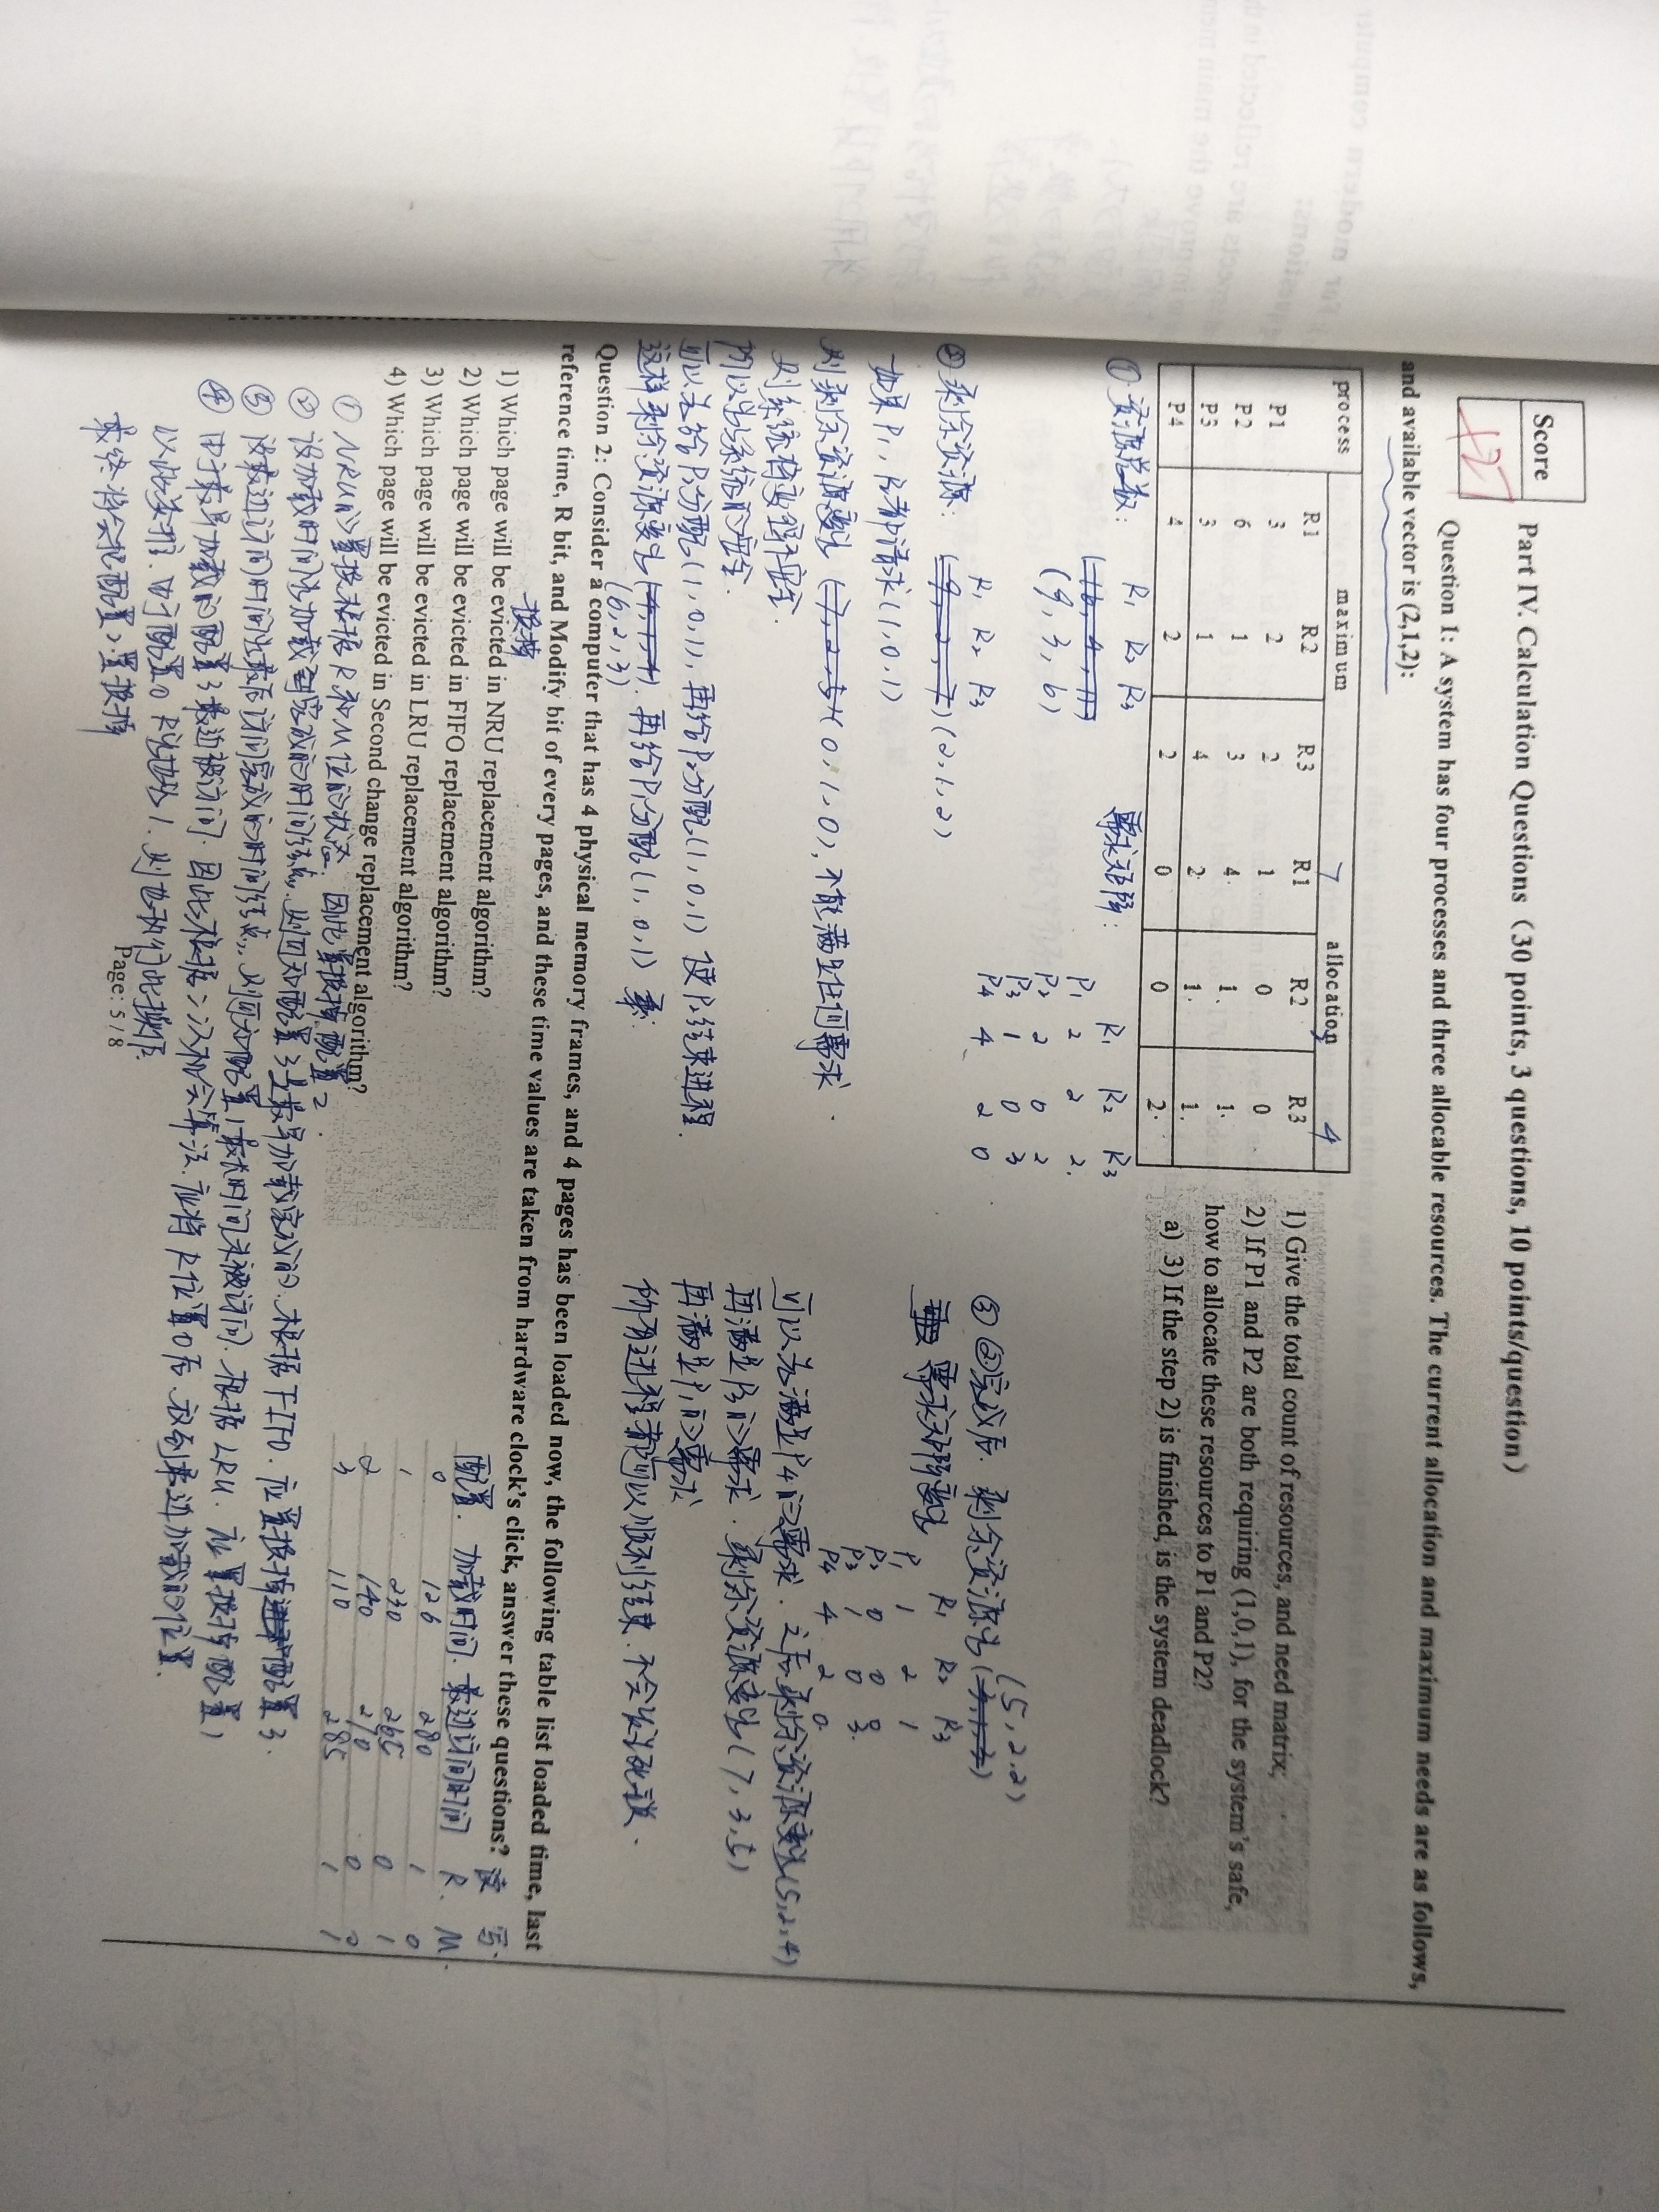 Score
+27
Part IV. Calculation Questions（30 points, 3 questions, 10 points/question）
Question 1: A system has four processes and three allocable resources. The current allocation and maximum needs are as follows,
and available vector is (2,1,2):
process maximum 7 allocation 3 4
R1 R2 R3 R1 R2 R3
P1 3 2 2 1 0 0
P2 6 1 3 4 1 1
P3 3 1 4 2 1 1
P4 4 2 2 0 0 2
1) Give the total count of resources, and need matrix;
2) If P1 and P2 are both requiring (1,0,1), for the system's safe,
how to allocate these resources to P1 and P2?
a) 3) If the step 2) is finished, is the system deadlock?
① 资源总数: R1 R2 R3
(16, 4, 11)
(9, 3, 6)
需求矩阵: R1 R2 R3
P1 2 2 2
P2 2 0 2
P3 1 0 3
P4 4 2 0
R1 R2 R3
② 剩余资源: (9, 2, 7) (2,1,2)
如果P1, P2都请求(1,0,1)
则剩余资源变为(7,2,5)(0,1,0),不能满足任何需求.
则系统将变得不安全.
所以为了系统的安全.
可以先给P2分配(1,0,1),再给P2分配(1,0,1) 使P2结束进程.
这样剩余资源变为(4,1,4). 再给P1分配(1,0,1)
(6,2,3)
(5,2,2)
③ ②完成后. 剩余资源为(3,1,3)
需求矩阵变为 R1 R2 R3
P1 1 2 1
P2 0 0 0
P3 1 0 3
P4 4 2 0
可以先满足P4的需求. 之后剩余资源变为(5,2,4)
再满足P3的需求. 剩余资源变为(7,3,5)
再满足P1的需求
所有进程都可以顺利结束.不会发生死锁.
Question 2: Consider a computer that has 4 physical memory frames, and 4 pages has been loaded now, the following table list loaded time, last
reference time, R bit, and Modify bit of every pages, and these time values are taken from hardware clock's click, answer these questions?
换掉
1) Which page will be evicted in NRU replacement algorithm?
2) Which page will be evicted in FIFO replacement algorithm?
3) Which page will be evicted in LRU replacement algorithm?
4) Which page will be evicted in Second change replacement algorithm?
读 写
配置. 加载时间. 最近访问时间 R. M.
0 126 280 1 0
1 230 265 0 1
2 140 270 0 0
3 110 285 1 1
① NRU的置换根据R和M位的状态.因此置换掉配置2.
② 设加载时间为加载到完成的时间结点.则可知配置3是最早加载完成的.根据FIFO.应置换掉配置3.
③ 设最近访问时间为最后访问完成的时间结点,则可知配置1最长时间未被访问.根据LRU.应置换掉配置1
④ 由于最早加载的配置3最近被访问.因此根据二次机会算法.应将R位置0后.放到最近加载的位置.
以此类推.由于配置0 R为也为1.则也执行此操作.
最终将会把配置2置换掉
Page: 5 / 8